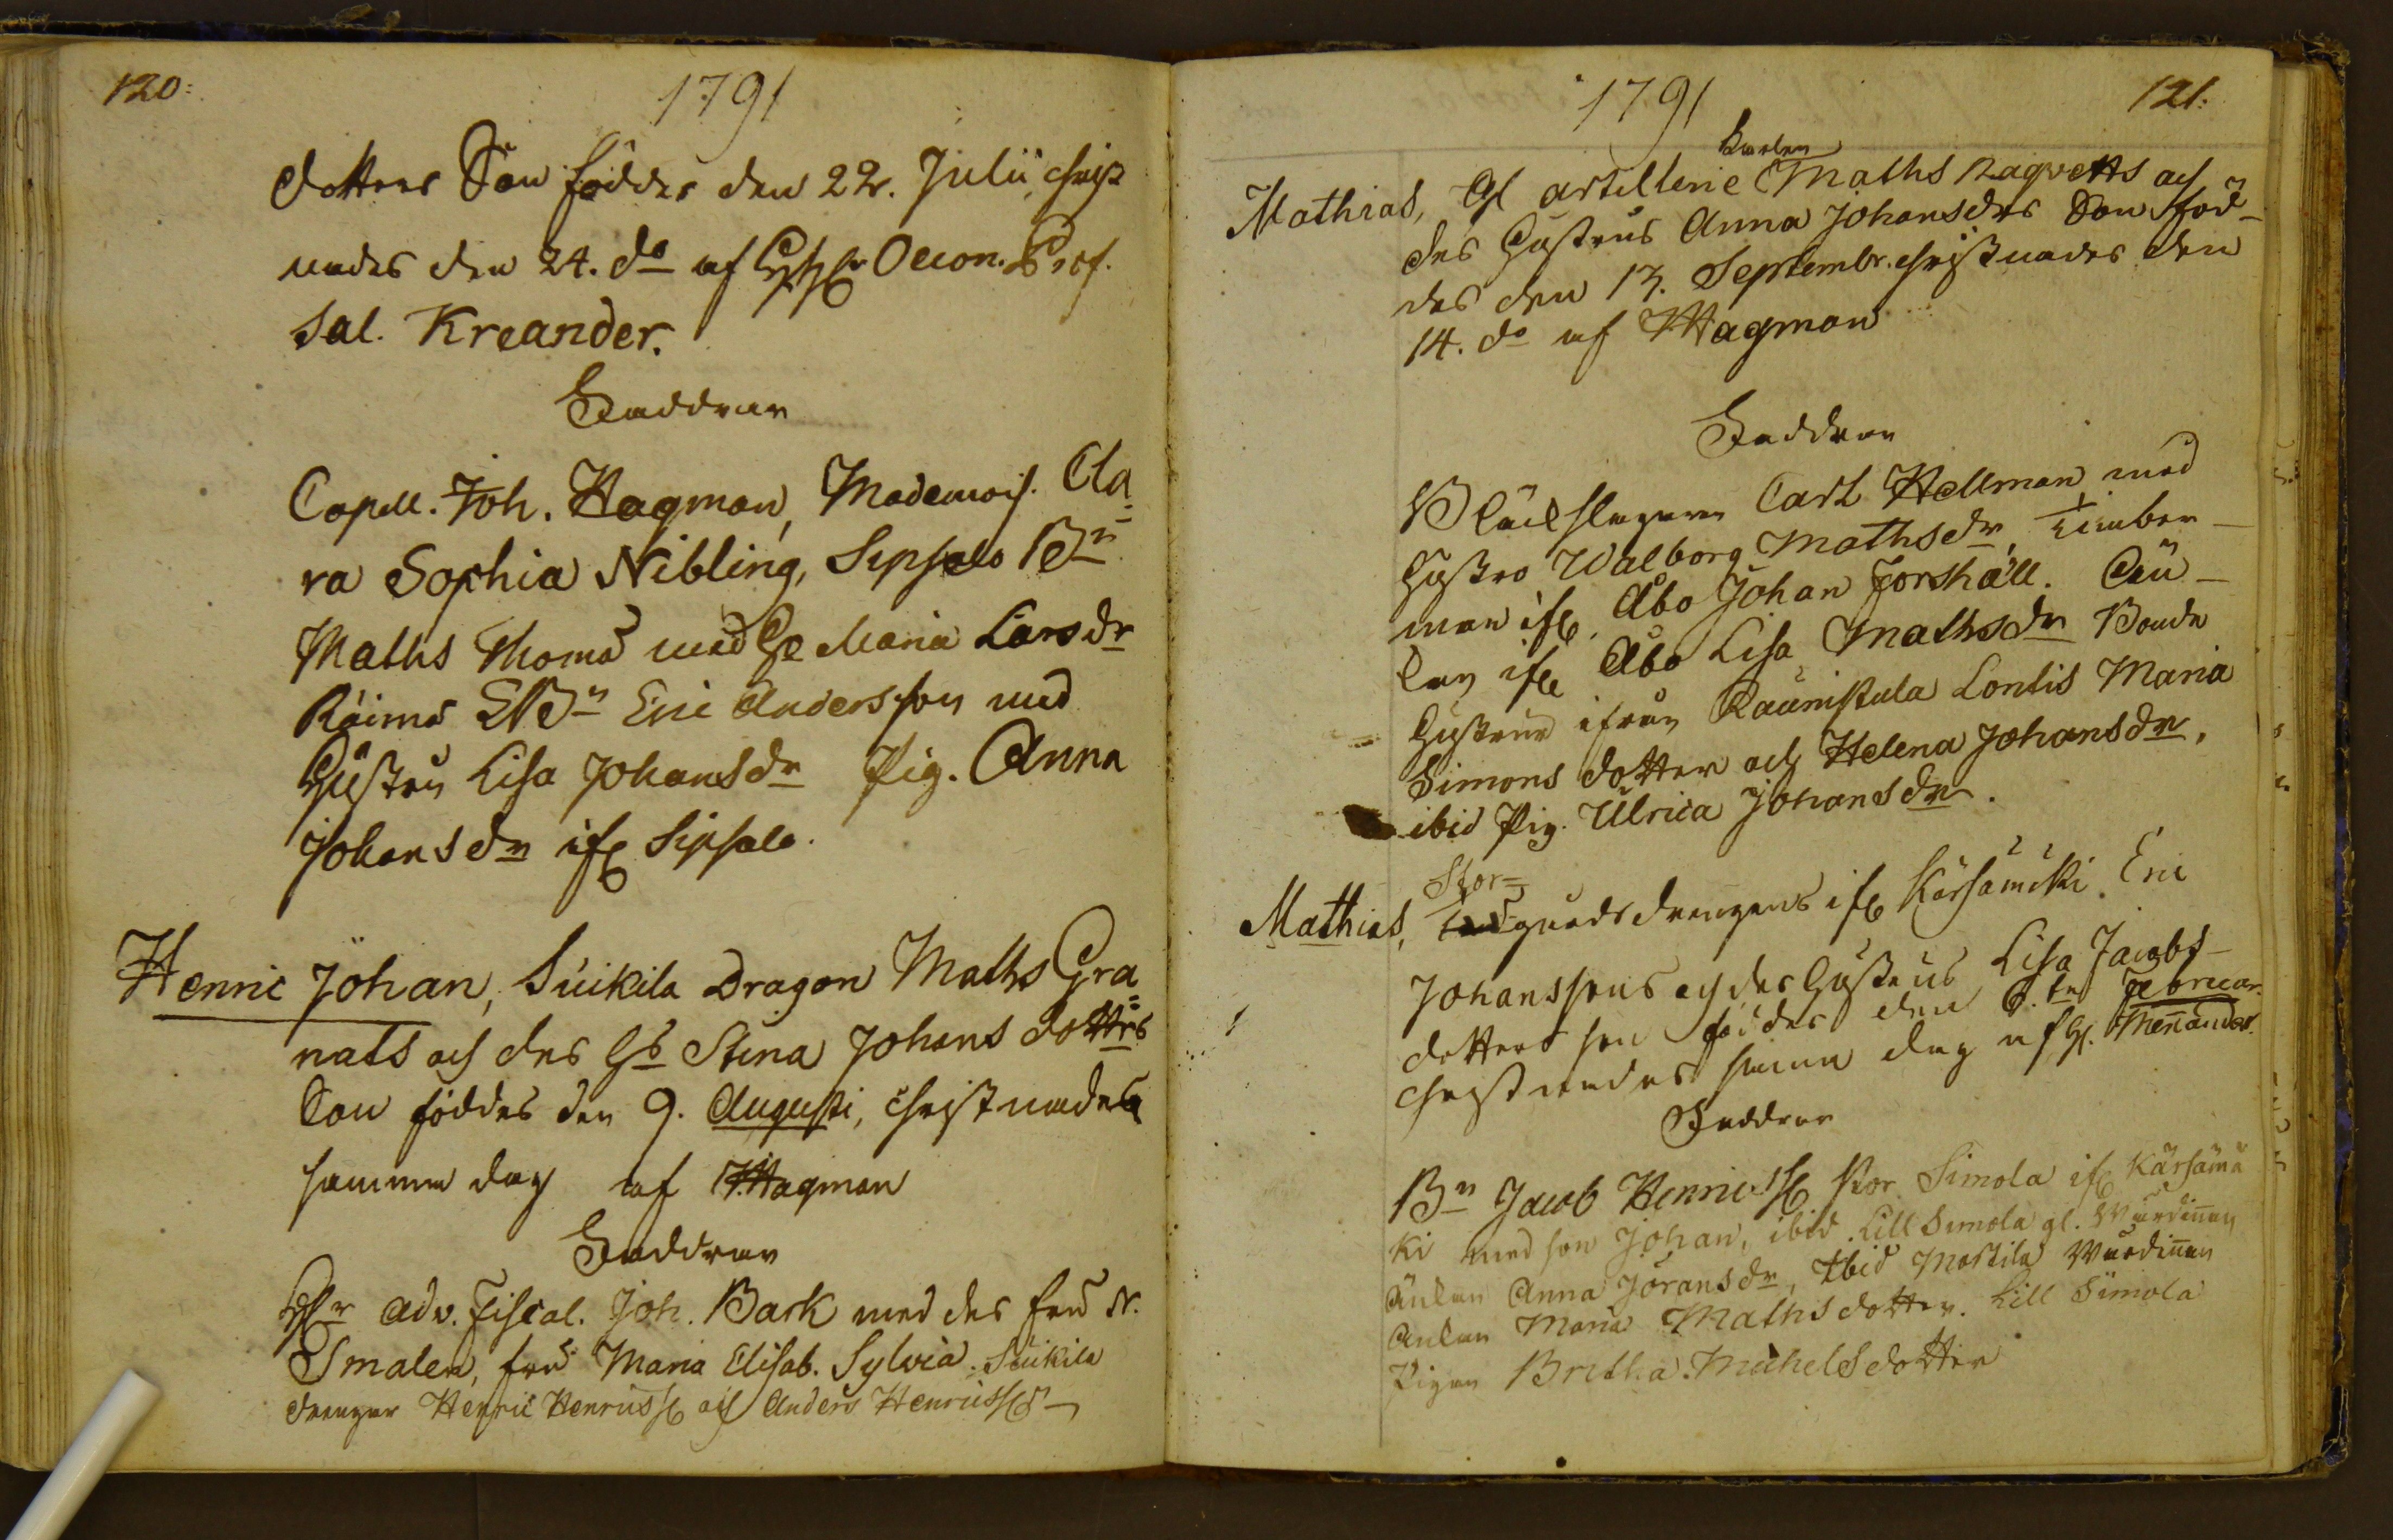 120:
1791
dotters Son föddes den 22. Julii, christ
nades den 24. do af Oecon. Prof.
Sal. Kreander.
Faddrar
Capell. Joh. Hagman, Mademois. Cla=
ra Sophia Nibling, Sipsalo Bn
Maths Thoms med Maria Larsdr
Räims Eric Andersson med
Hustru Lisa Johansdr Pig. Anna
Johansdr ifr Sipsalo.
Henric Johan, Suikila Dragon Maths Gra=
nats och des Hs Stina Johans dotters
Son föddes den 9. Augusti, christnades
samma dag af J. Hagman
Faddrar
Hr Adv. Fiscal. Joh. Bark med des fru N.
Smalen, fru Maria Elisab. Sylvia. Suikila
drengar Henric Henricss och Anders Henricss
1791
121.
karlen
Mathias, Gl artillerie Maths Raqvetts och
des Hustrus Anna Johansdrs Son föd-
des den 13. Septembr. christnades den
14. do af Hagman
Faddrar
Bläckslagaren Carl Hellman med
Hustro Walborg Mathsdr, Timber-
man ifr Åbo Johan Forshäll.
ifr Åbo Lisa Mathsdr Bonde
Hustrun ifrån Raunistula Lontis Maria
Simons dotter och Helena Johansdr,
ibid Pig. Ulrica Johansdr.
Stor=
Mathias, gårdsdrengens ifr Kärsämäki Eric
Johanssons och des Hustrus Lisa Jacobs-
dotters son föddes den 6.te Februar.
christnades samma dag af H. Menander.
Faddrar
Bn Jacob Henricss Stor Simola ifr Kärsämä
ki med son Johan, ibid. Lill Simola gl. Wärdinnan
Änkan Anna Jöransdr, Ibid Mattila Wärdinnan
Änkan Maria Mathsdotter. Lill Simola
Pigan Britha Michelsdotter